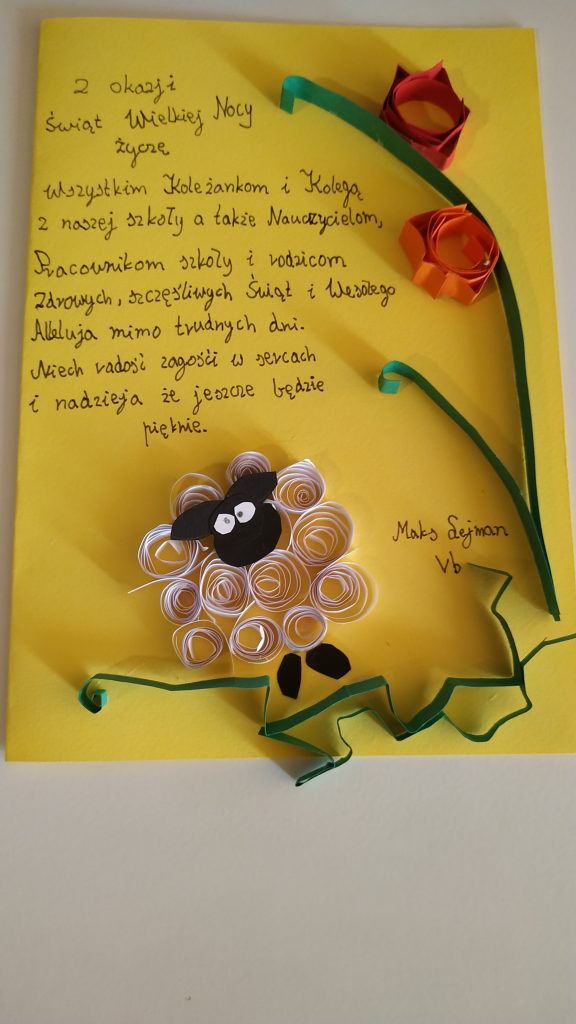 Z okazji
Świąt Wielkiej Nocy
życzę
wszystkim Koleżankom i Kolegą
z naszej szkoły a także Nauczycielom,
Pracownikom szkoły i rodzicom
Zdrowych, szczęśliwych Świąt i Wesołego
Alleluja mimo trudnych dni.
Niech radość zagości w sercach
i nadzieja że jeszcze będzie
pięknie.
Maks Lejman
Vb